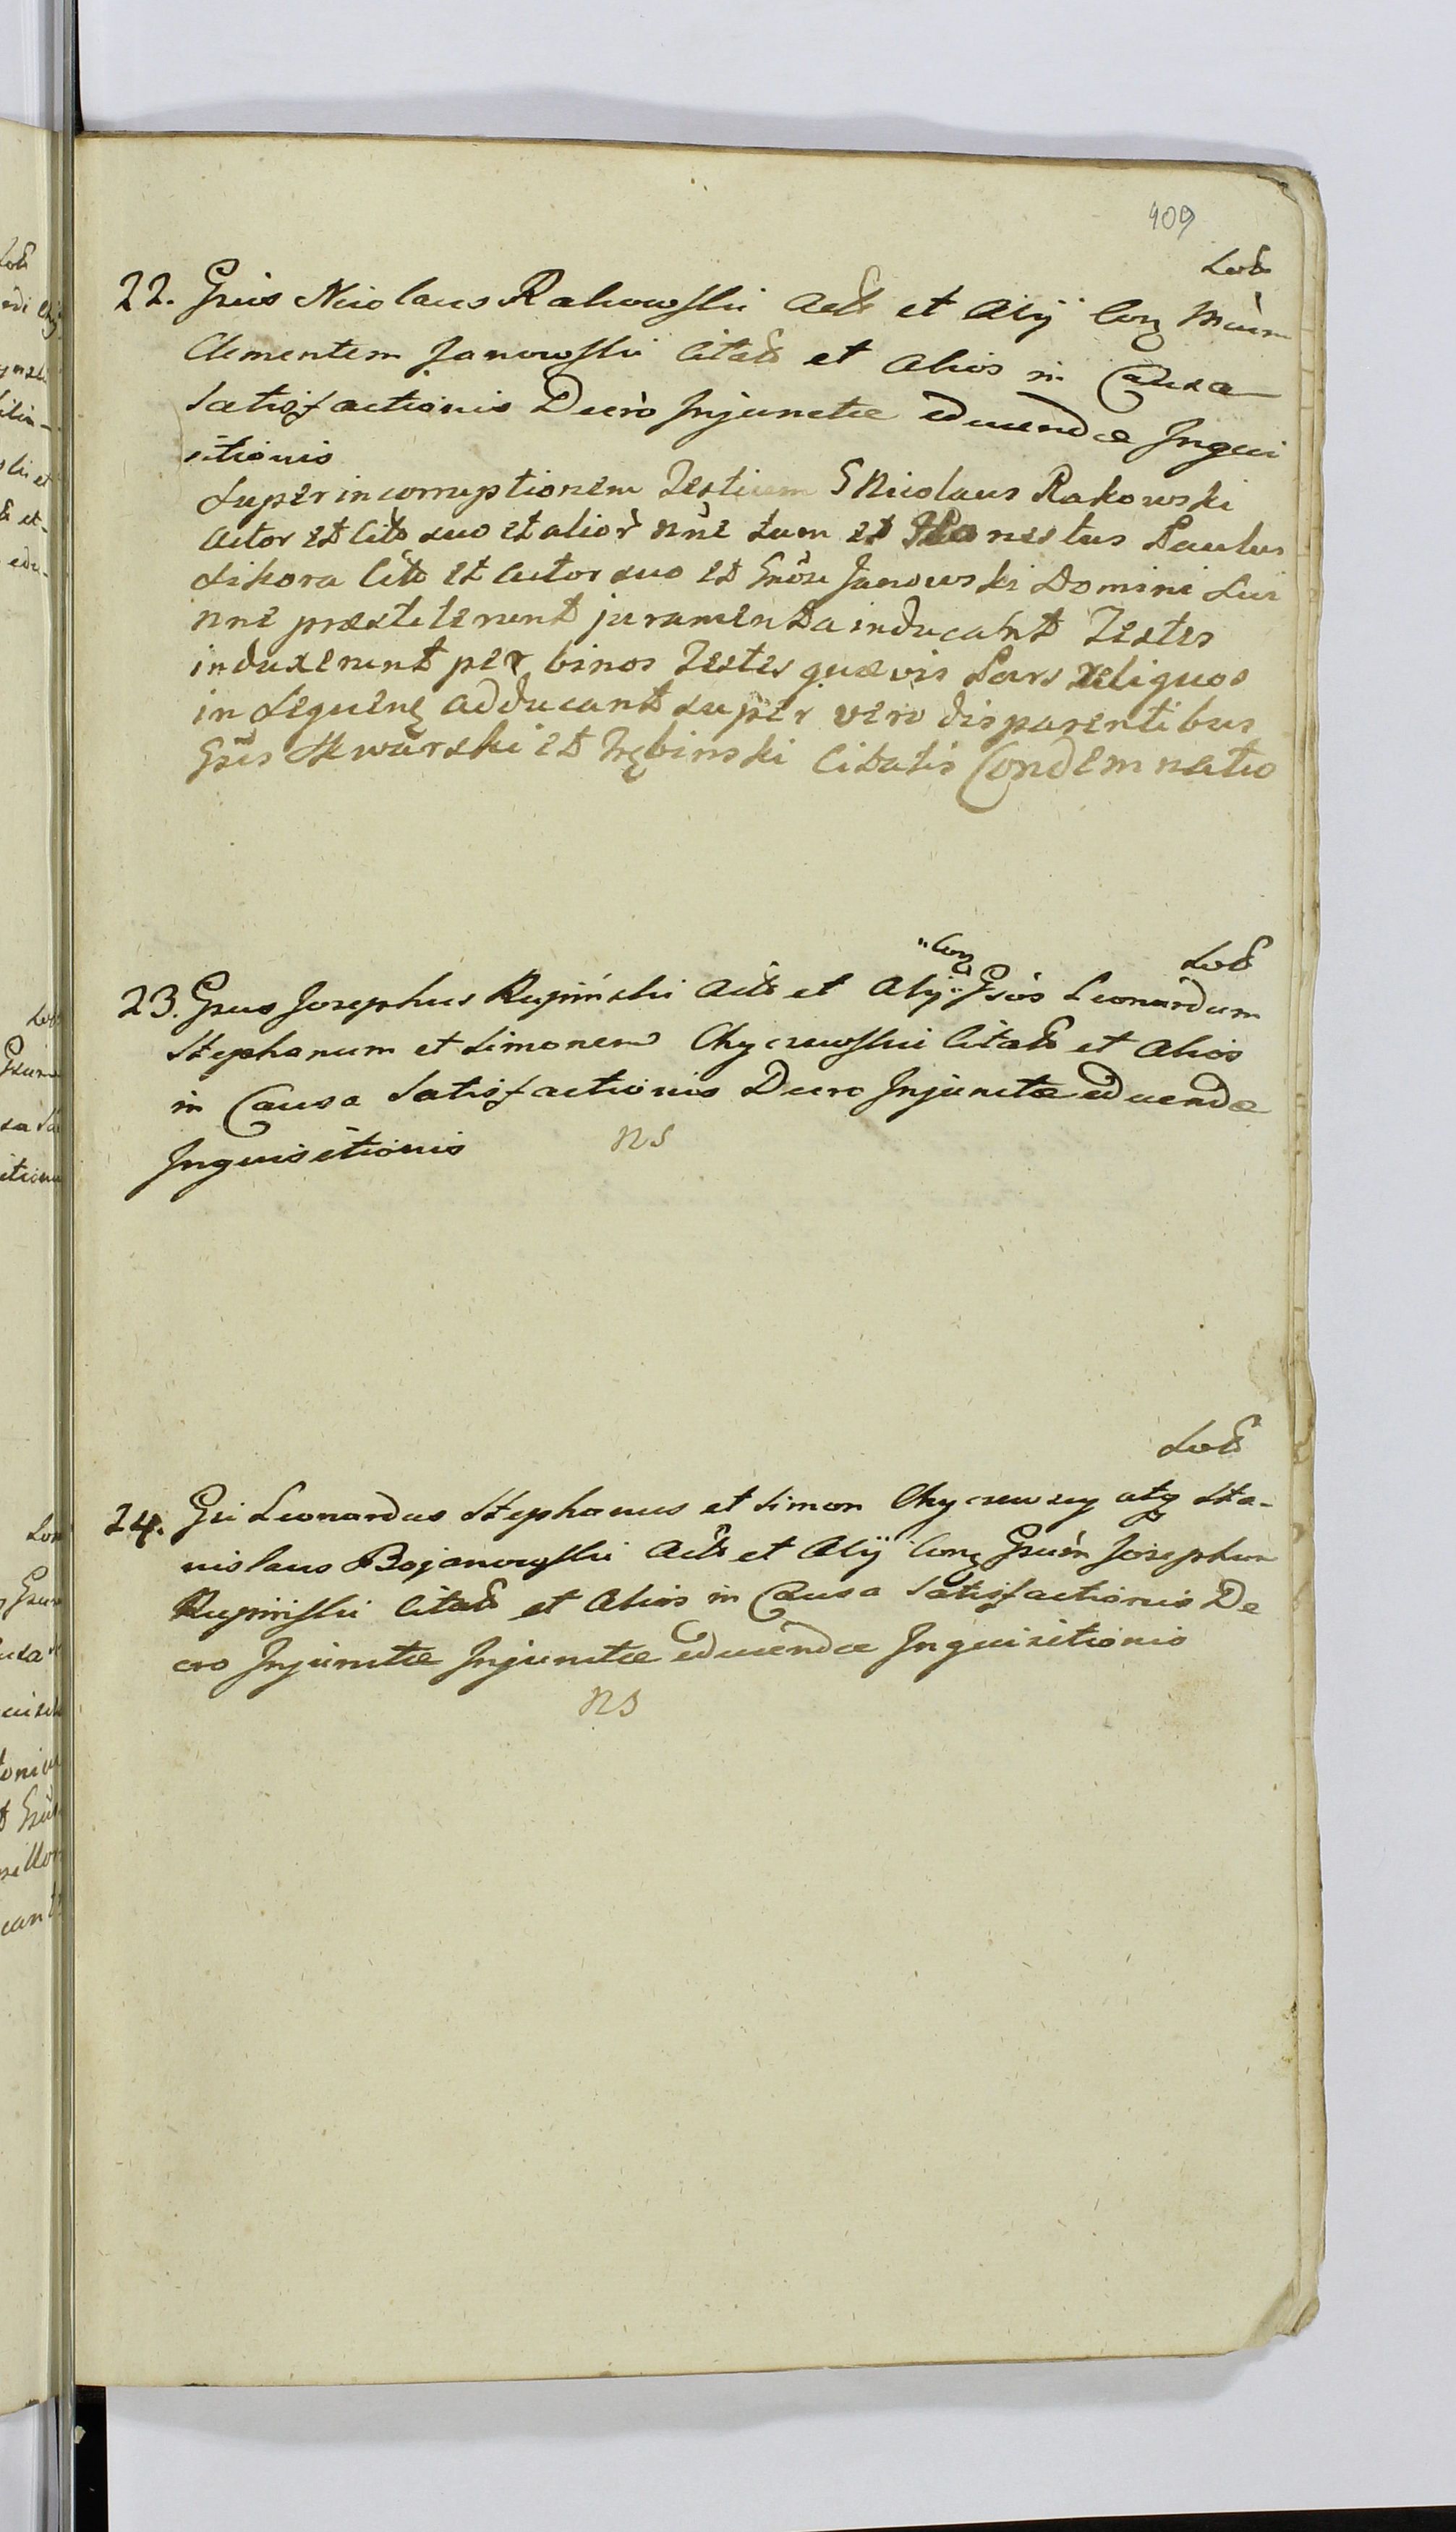 409
Lod
22. Grius Nicolaus Rakowski Actt et Alÿ Conq Mcum
Clementem Janowski Citatt et Alios in Causa
Satisfactionis Decro Injunctæ educendæ Inqui
sitionis
Super incorruptionem Testium G Nicolaus Rakowski
Actor et Citt suo et alior nne tum et Honestus Paulus
Sikora Citt et Actor suo et Gnosi Janowski Domini Sui
nne præstiterunt juramenta inducant Testes
induxerunt per binos Testes quævis Pars reliquos
in Sequenq adducant super vero disparentibus
Gsis Skwarski et Trębinski Citatis Condemnatio
Lod
23. Gsus Josephus Rupinski Actt et Alÿ "Conq" Gsos Leonardum
Stephanum et Simonem Chyczewski Citatt et Alios
in Causa Satisfactionis Decro Injunctæ educendæ
Inquisitionis ns
Lod
24. Gsi Leonardus Stephanus et Simon Chyczewscy atq Sta-
nislaus Bojanowski Actt et Alÿ Conq Gsum Josephum
Rupinski Citatt et Alios in Causa Satisfactionis De
cro Injunctæ Injunctæ educendæ Inquisitionis
ns